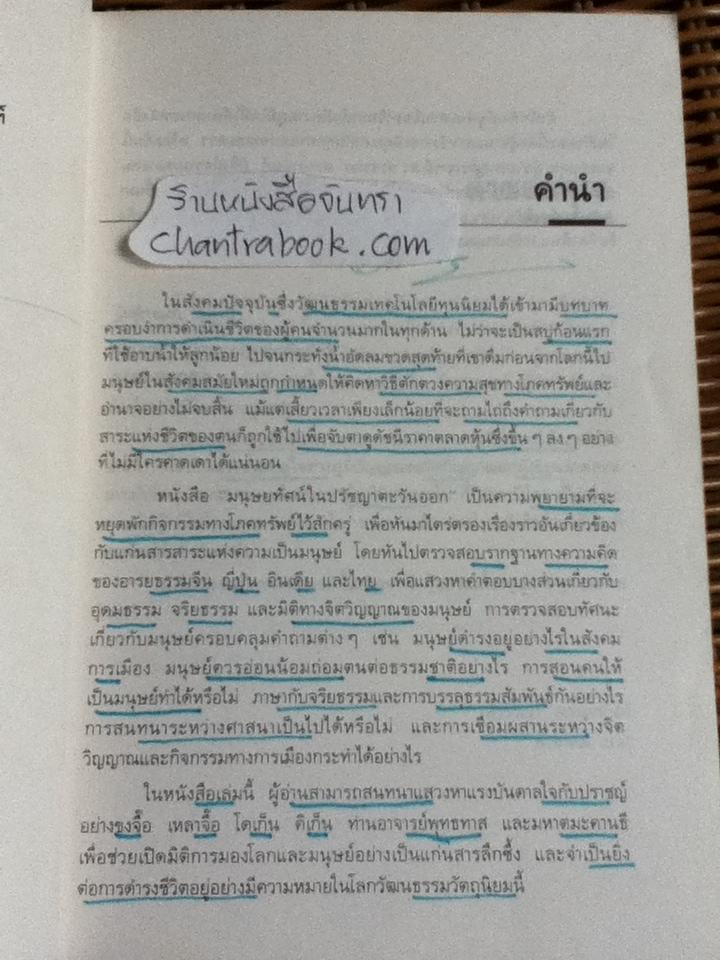 คำนำ
ร้านหนังสือจันทรา
Chantrabook.com
ในสังคมปัจจุบันซึ่งวัฒนธรรมเทคโนโลยีทุนนิยมได้เข้ามามีบทบาท
ครอบงำการดำเนินชีวิตของผู้คนจำนวนมากในทุกด้าน ไม่ว่าจะเป็นสบู่ก้อนแรก
ที่ใช้อาบน้ำให้ลูกน้อย ไปจนกระทั่งน้ำอัดลมขวดสุดท้ายที่เขาดื่มก่อนจากโลกนี้ไป
มนุษย์ในสังคมสมัยใหม่ถูกกำหนดให้คิดหาวิธีตักตวงความสุขทางโภคทรัพย์และ
อำนาจอย่างไม่จบสิ้น แม้แต่เสี้ยวเวลาเพียงเล็กน้อยที่จะถามไถ่ถึงคำถามเกี่ยวกับ
สาระแห่งชีวิตของตนก็ถูกใช้ไปเพื่อจับตาดูดัชนีราคาตลาดหุ้นซึ่งขึ้น ๆ ลง ๆ อย่าง
ที่ไม่มีใครคาดเดาได้แน่นอน
หนังสือ "มนุษยทัศน์ในปรัชญาตะวันออก" เป็นความพยายามที่จะ
หยุดพักกิจกรรมทางโภคทรัพย์ไว้สักครู่ เพื่อหันมาไตร่ตรองเรื่องราวอันเกี่ยวข้อง
กับแก่นสารสาระแห่งความเป็นมนุษย์ โดยหันไปตรวจสอบรากฐานทางความคิด
ของอารยธรรมจีน ญี่ปุ่น อินเดีย และไทย เพื่อแสวงหาคำตอบบางส่วนเกี่ยวกับ
อุดมธรรม จริยธรรม และมิติทางจิตวิญญาณของมนุษย์ การตรวจสอบทัศนะ
เกี่ยวกับมนุษย์ครอบคลุมคำถามต่าง ๆ เช่น มนุษย์ดำรงอยู่อย่างไรในสังคม
การเมือง มนุษย์ควรอ่อนน้อมถ่อมตนต่อธรรมชาติอย่างไร การสอนคนให้
เป็นมนุษย์ทำได้หรือไม่ ภาษากับจริยธรรมและการบรรลุธรรมสัมพันธ์กันอย่างไร
การสนทนาระหว่างศาสนาเป็นไปได้หรือไม่ และการเชื่อมผสานระหว่างจิต
วิญญาณและกิจกรรมทางการเมืองกระทำได้อย่างไร
ในหนังสือเล่มนี้ ผู้อ่านสามารถสนทนาแสวงหาแรงบันดาลใจกับปราชญ์
อย่างขงจื๊อ เหลาจื๊อ โดเก็น คิเก็น ท่านอาจารย์พุทธทาส และมหาตมะคานธี
เพื่อช่วยเปิดมิติการมองโลกและมนุษย์อย่างเป็นแก่นสารลึกซึ้ง และจำเป็นยิ่ง
ต่อการดำรงชีวิตอยู่อย่างมีความหมายในโลกวัฒนธรรมวัตถุนิยมนี้